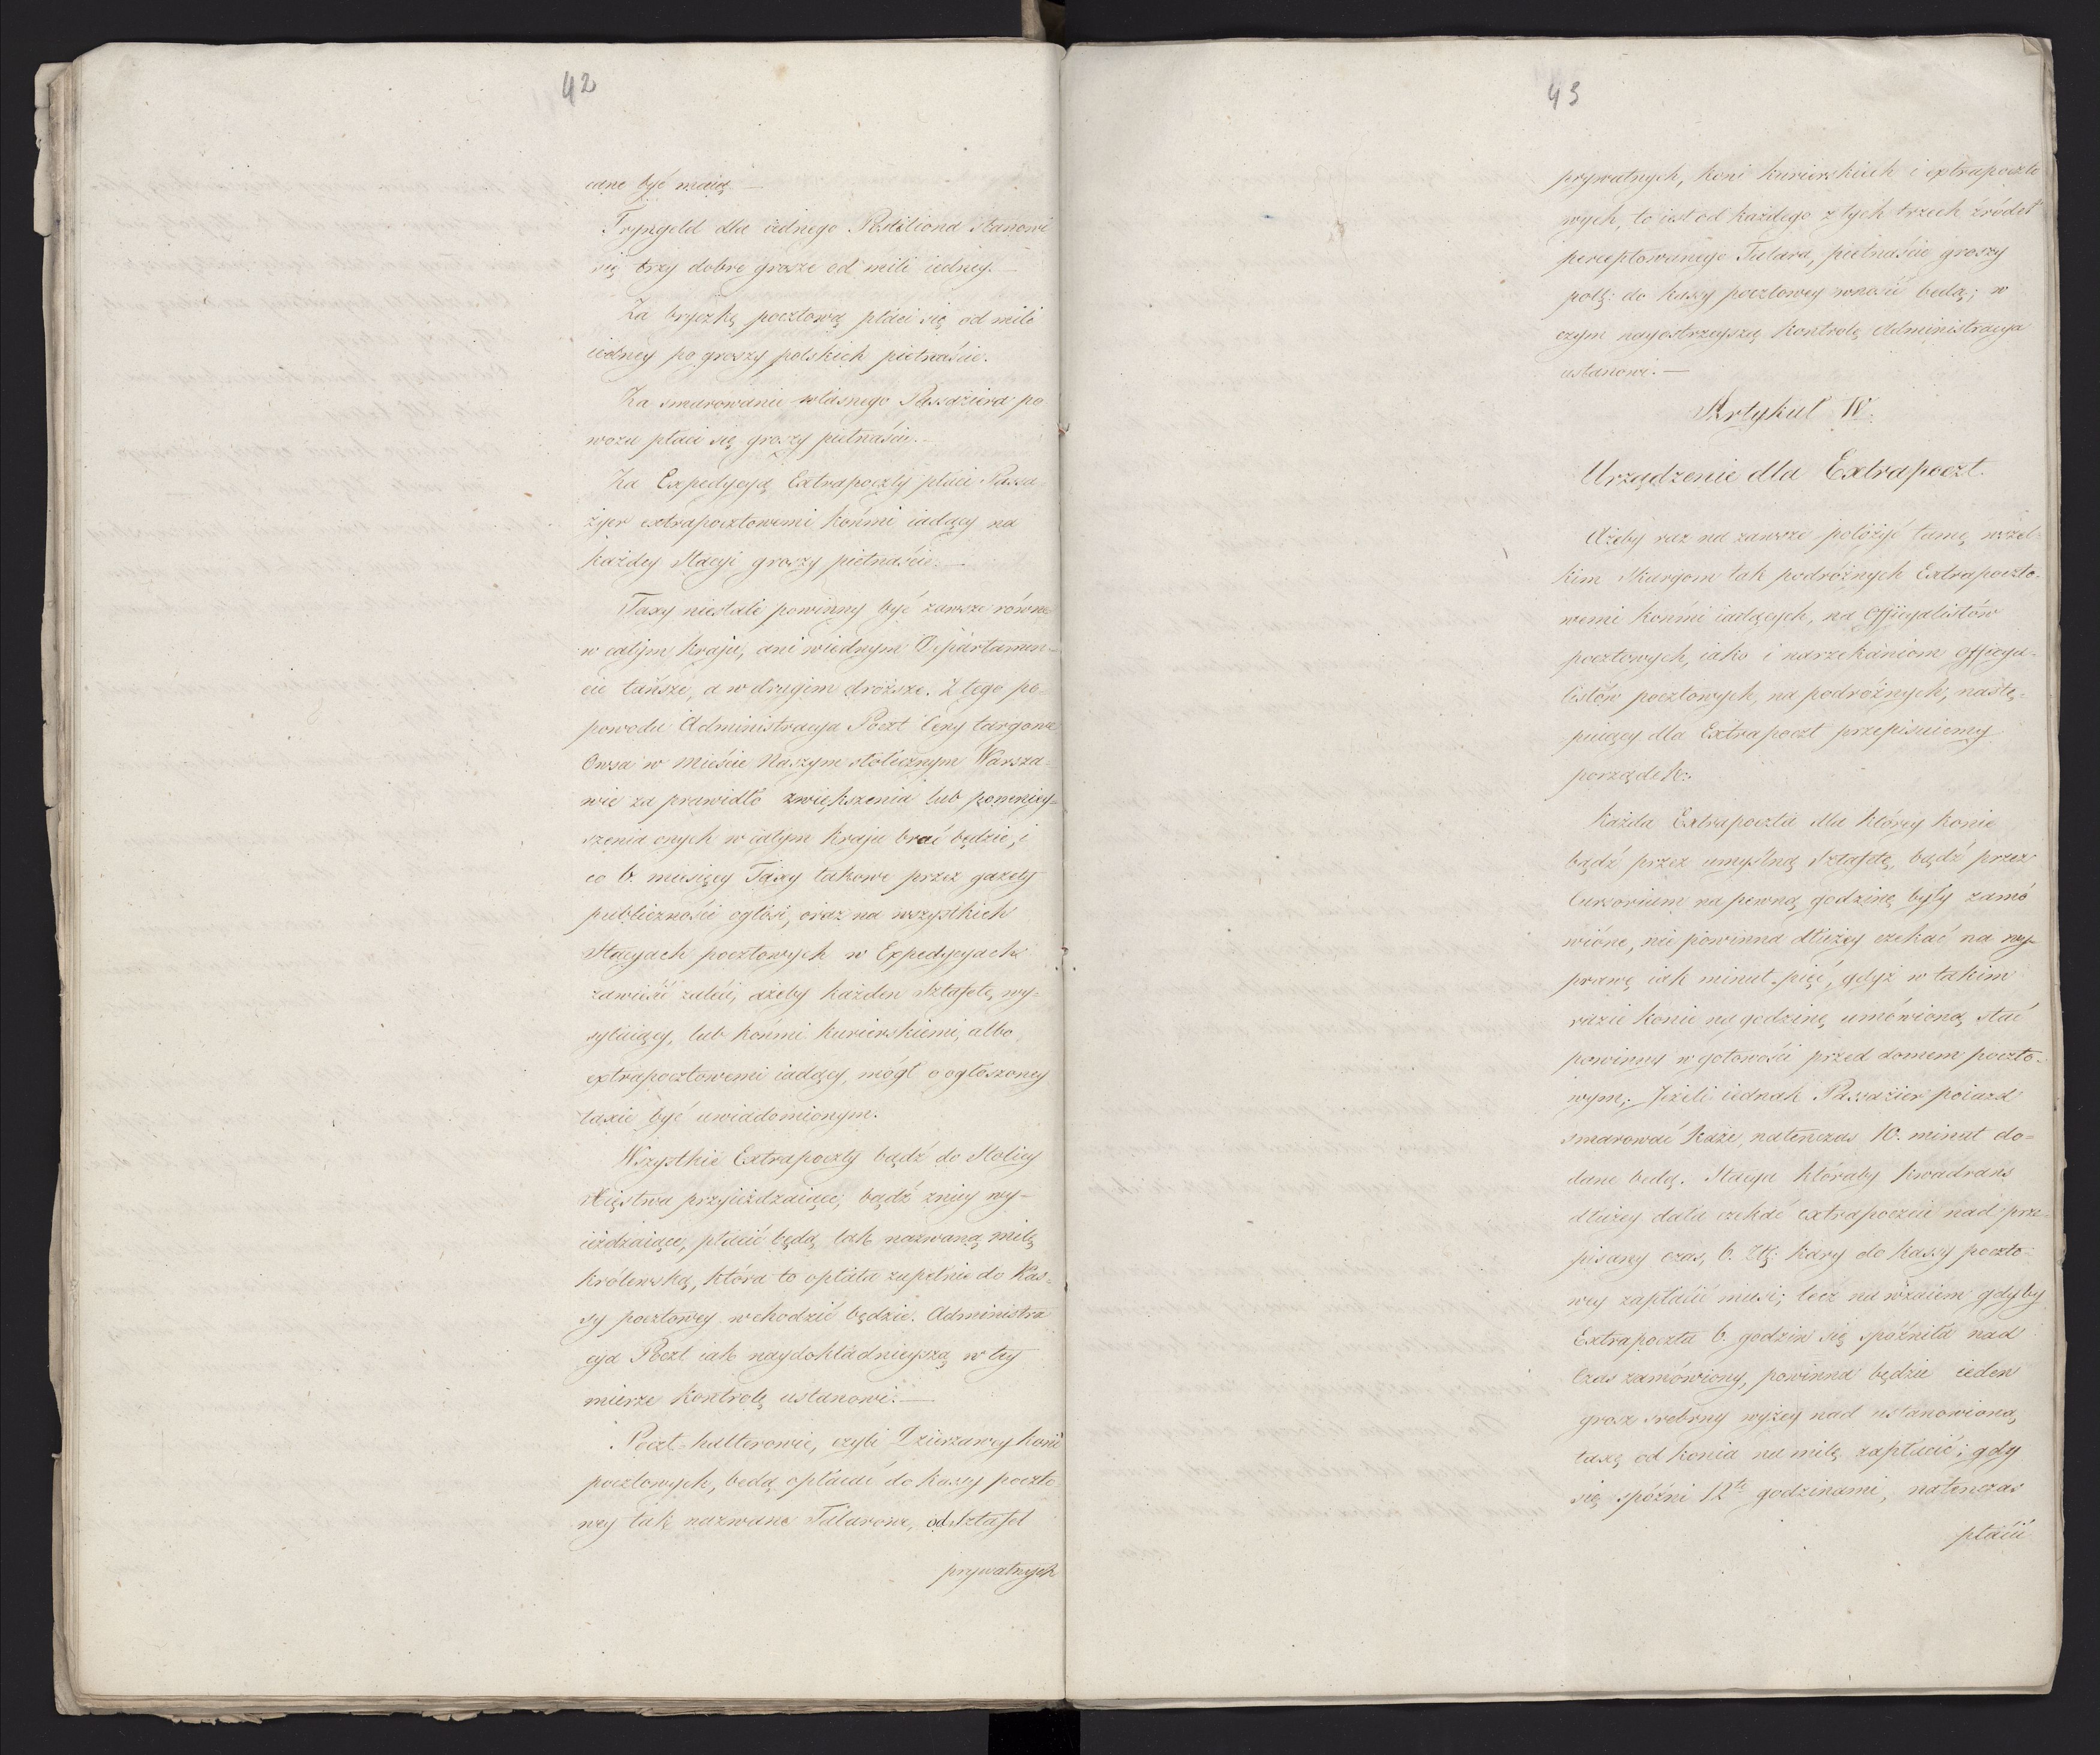 42
cane być maią —
Tryngeld dla iednego Postiliona stanowi
się trzy dobre grosze od mili iedney. —
Za bryczkę pocztową płaci się od mili
iedney po groszy polskich pietnaście.
Za smarowanie własnego Passażiera po
wozu płaci się groszy pietnaście. —
Za Expedycyą Extrapoczty płaci Passa-
żyer extrapocztowemi końmi iadący na
każdey Stacyi groszy pietnaście. —
Taxy niestałe powinny być zawsze równe
w całym kraju, ani wiednym Departamen-
cie tańsze, a w drugim droższe. Z tego po-
powodu Administracya Poczt Ceny targowe
Owsa w mieście Naszym stołecznym Warsza-
wie za prawidło zwiększenia lub pomniey-
szenia onych w całym kraju brać będzie, i
co 6. miesięcy Taxy takowe przez gazety
publiczności ogłosi, oraz na wszystkich
Stacyach pocztowych w Expedycyach
zawiesić zaleci, ażeby każden Sztafetę wy-
syłaiący, lub końmi kurierskiemi, albo
extrapocztowemi iadący, mógł o ogłoszoney
taxie być uwiadomionym.
Wszystkie Extrapoczty bądź do Stolicy
Xięstwa przyieżdzaiące, bądź zniey wy-
ieżdzaiące, płacić będą tak nazwaną milę
królewską, która to opłata zupełnie do Kas-
sy pocztowey wchodzić będzie. Administra
cya Poczt iak naydokładnieyszą w tey
mierze kontrolę ustanowi. —
Poczt-halterowie, czyli Dzierzawcy koni
pocztowych, będą opłacać do kassy poczto
wey tak nazwane Talarowe, od Sztafet
prywatnych
43
prywatnych, koni kurierskich i extrapoczto
wych, to iest od każdego z tych trzech źródeł
perceptowanego Talara, pietnaście groszy
polś: do kassy pocztowey wnosić będą; w
czym nayostrzeyszą kontrolę Administracya
ustanowi. —
Artykuł IV.
Urządzenie dla Extrapoczt.
Ażeby raz na zawsze położyć tamę wszel-
kim skargom tak podróżnych Extrapoczto-
wemi końmi iadących, na Officyalistów
pocztowych, iako i narzekaniom officya-
listów pocztowych, na podróżnych, nastę-
puiący dla Extrapoczt przepisuiemy
porządek:
Każda Extrapoczta dla którey konie
bądź przez umyślną Sztafetę, bądź przez
Cursorium na pewną godzinę były zamó
wione, nie powinna dłużey czekać na wy-
prawę iak minut pięć, gdyż w takim
razie konie na godzinę umówioną stać
powinny w gotowości przed domem poczto-
wym; Jeżeli iednak Passażier poiazd
smarować każe, natenczas 10. minut do-
dane będą. Stacya któraby kwadrans
dłużey dała czekać extrapoczcie nad prze-
pisany czas, 6. Złł: kary do kassy poczto-
wey zapłacić musi; lecz na wzaiem gdyby
Extrapoczta 6. godzin się spóźniła nad
Czas zamówiony, powinna będzie ieden
grosz srebrny wyżey nad ustanowioną
taxę od konia na milę zapłacić; gdy
się spóźni 12te godzinami, natenczas
płacić